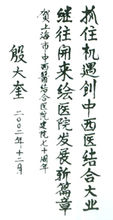 抓住机遇创中西医结合大业
继往开来绘医院发展新篇章
贺上海市中西医结合医院建院七十周年
殷大奎
二〇〇二年十二月